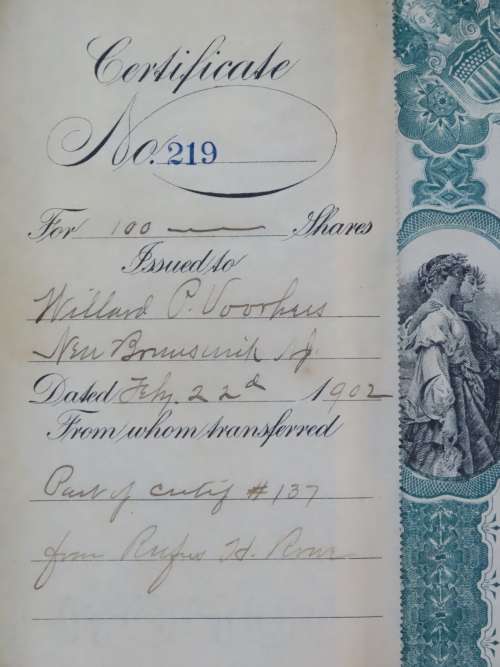 Certificate
No. 219
For 100 Shares
Issued to
Willard P. Voorhees
New Brunswick NJ.
Dated Feby 22d 1902
From whom transferred
Part of certif # 137
from Rufus H.